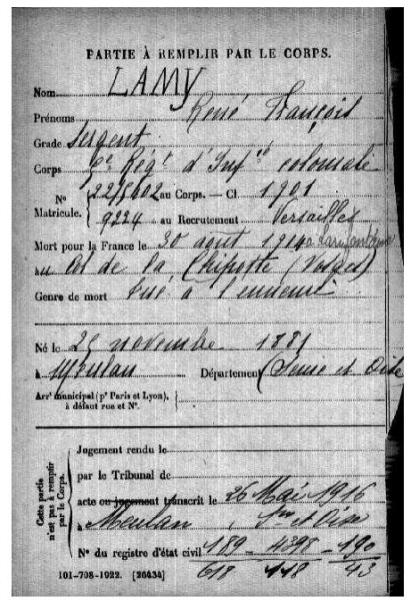 PARTIE À REMPLIR PAR LE CORPS.
Nom LAMY
Prénoms René François
Grade Sergent
Corps 6e Régt d'Infie coloniale
N° Matricule. 22/5602 au Corps. — Cl. 1901
9224 au Recrutement Versailles
Mort pour la France le 30 août 1914
au Col de la Chipotte (Vosges)
Genre de mort Tué à l'ennemi
Né le 25 novembre 1881
à Meulan Département Seine et Oise
Arrt municipal (pr Paris et Lyon),
à défaut rue et N°.
Cette partie n'est pas à remplir par le Corps.
Jugement rendu le
par le Tribunal de
acte ou jugement transcrit le 26 Mai 1916
à Meulan Sne & Oise
N° du registre d'état civil 189 - 4398 - 190
101-708-1922. [26434] 618 118 43